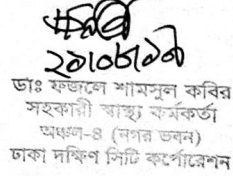 ২১।০৮।১৯
ডাঃ ফজলে শামসুল কবির
সহকারী স্বাস্থ্য কর্মকর্তা
অঞ্চল-৪ (নগর ভবন)
ঢাকা দক্ষিণ সিটি কর্পোরেশন